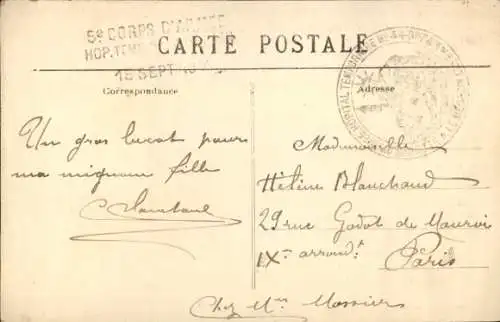 5e CORPS D'ARMÉE
HOP. TEM
15 SEPT
CARTE POSTALE
Correspondance
Adresse
HOPITAL TEMPORAIRE
Un gros becot pour
ma mignonne fille
Mademoiselle
Hélène Blanchaud
29 rue Godot de Mauroi
IXme arrondt
Paris
Chez Mme